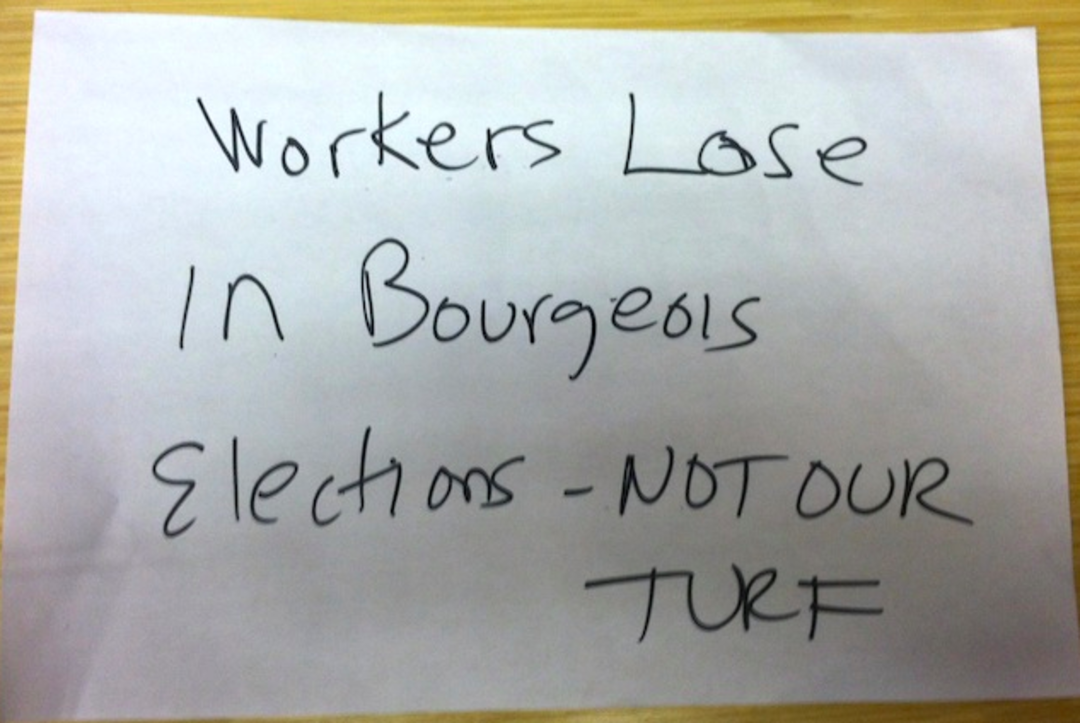 Workers Lose
In Bourgeois
Elections - NOT OUR
TURF